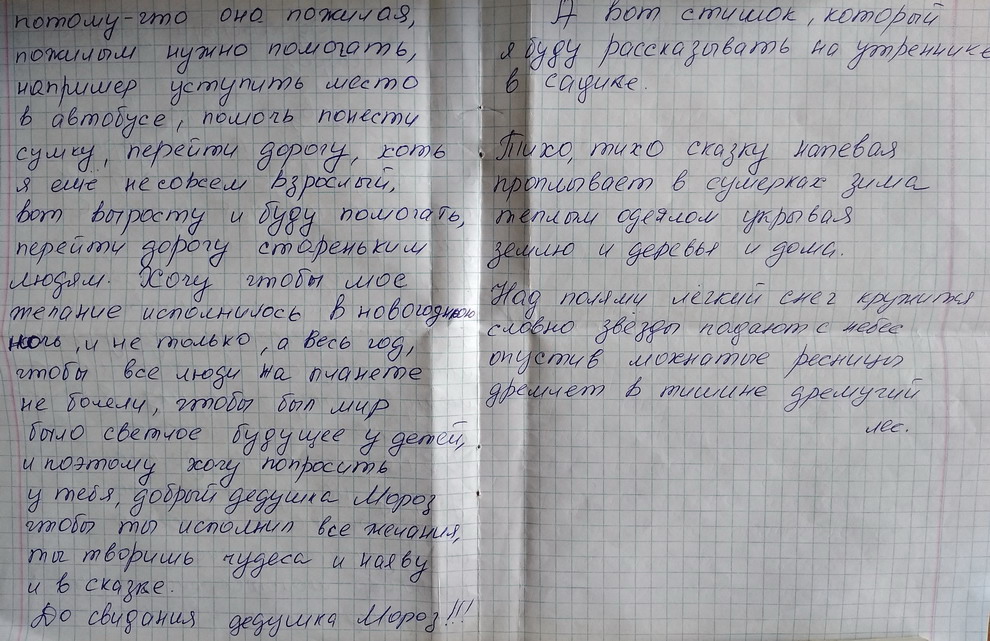 потому-что она пожилая,
пожилым нужно помогать,
например уступить место
в автобусе, помочь понести
сумку, перейти дорогу, хоть
я ещё несовсем взрослый,
вот вырасту и буду помогать,
перейти дорогу стареньким
людям. Хочу чтобы мое
желание исполнилось в новогоднюю
ночь, и не только, а весь год,
чтобы все люди на планете
не болели, чтобы был мир
было светлое будущее у детей,
и поэтому хочу попросить
у тебя, добрый дедушка Мороз
чтобы ты исполнил все желания,
ты творишь чудеса и наяву
и в сказке.
До свидания дедушка Мороз!!!
А вот стишок, который
я буду рассказывать на утреннике
в садике.
Тихо, тихо сказку напевая
проплывает в сумерках зима
теплым одеялом укрывая
землю и деревья и дома.
Над полями лёгкий снег кружится
словно звёзды падают с небес
опустив мохнатые ресницы
дремлет в тишине дремучий
лес.